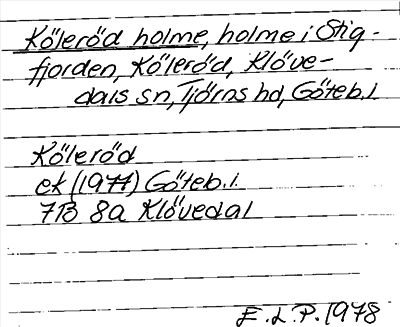 Köleröd holme, holme i Stig-
fjorden, Köleröd, Klöve-
dals sn, Tjörns hd, Göteb. l.
Köleröd
ek (1977) Göteb. l.
7B 8a Klövedal
E. L. P. 1978